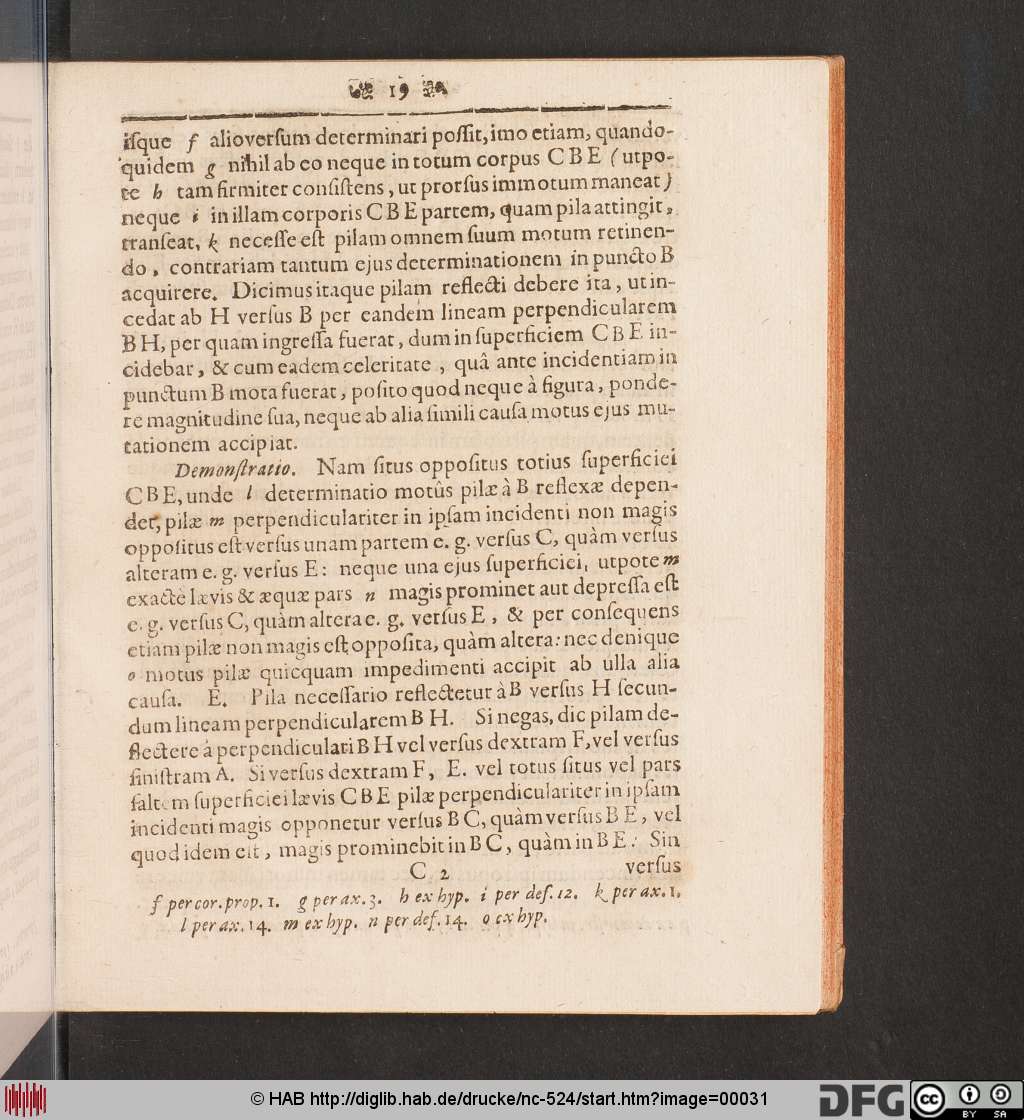 19
isque f alioversum determinari possit, imo etiam, quando-
quidem g nihil ab eo neque in totum corpus C B E (utpo-
te h tam firmiter consistens, ut prorsus immotum maneat)
neque i in illam corporis C B E partem, quam pila attingit,
transeat, k necesse est pilam omnem suum motum retinen-
do, contrariam tantum ejus determinationem in puncto B
acquirere. Dicimus itaque pilam reflecti debere ita, ut in-
cedat ab H versus B per eandem lineam perpendicularem
B H, per quam ingressa fuerat, dum in superficiem C B E in-
cidebat, & cum eadem celeritate, quâ ante incidentiam in
punctum B mota fuerat, posito quod neque à figura, ponde-
re magnitudine sua, neque ab alia simili causa motus ejus mu-
tationem accipiat.
Demonstratio. Nam situs oppositus totius superficiei
C B E, unde l determinatio motûs pilæ à B reflexæ depen-
det, pilæ m perpendiculariter in ipsam incidenti non magis
oppositus est versus unam partem e. g. versus C, quàm versus
alteram e. g. versus E: neque una ejus superficiei, utpote m
exactè lævis & æquæ pars n magis prominet aut depressa est
e. g. versus C, quàm altera e. g. versus E, & per consequens
etiam pilæ non magis est opposita, quàm altera: nec denique
o motus pilæ quicquam impedimenti accipit ab ulla alia
causa. E. Pila necessario reflectetur à B versus H secun-
dum lineam perpendicularem B H. Si negas, dic pilam de-
flectere à perpendiculari B H vel versus dextram F, vel versus
sinistram A. Si versus dextram F, E. vel totus situs vel pars
saltem superficiei lævis C B E pilæ perpendiculariter in ipsam
incidenti magis opponetur versus B C, quàm versus B E, vel
quod idem est, magis prominebit in B C, quàm in B E: Sin
C 2 versus
f per cor. prop. 1. g per ax. 3. h ex hyp. i per def. 12. k per ax. 1.
l per ax. 14. m ex hyp. n per def. 14. o ex hyp.
© HAB http://diglib.hab.de/drucke/nc-524/start.htm?image=00031
DFG
cc
BY SA